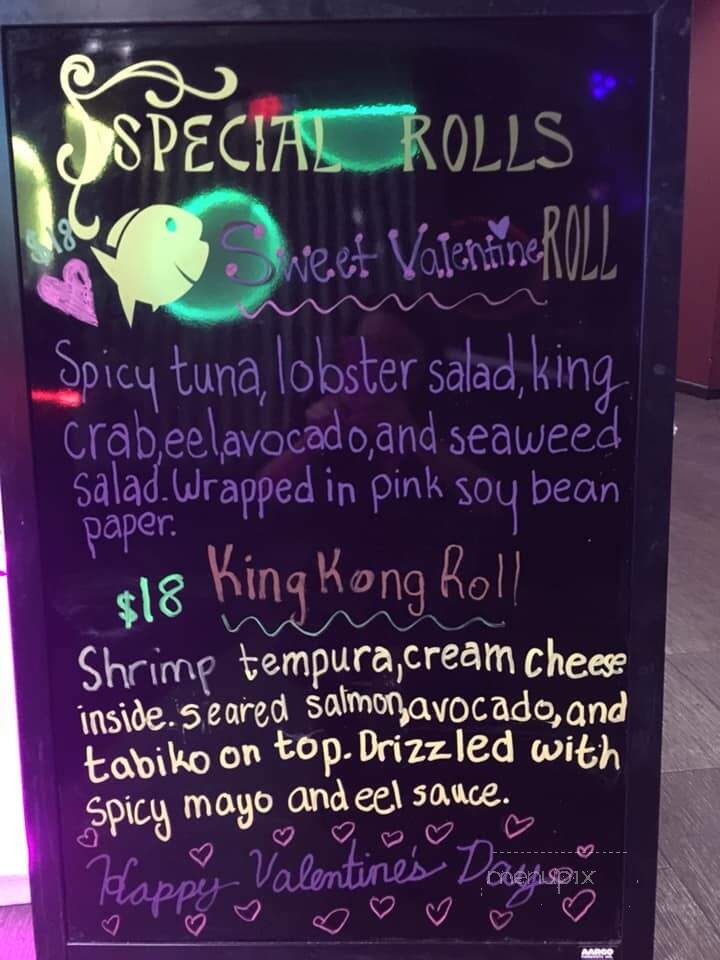 SPECIAL ROLLS
$18
Sweet Valentine ROLL
Spicy tuna, lobster salad, king
crab, eel, avocado, and seaweed
salad. Wrapped in pink soy bean
paper.
$18 King Kong Roll
Shrimp tempura, cream cheese
inside. seared salmon, avocado, and
tabiko on top. Drizzled with
spicy mayo and eel sauce.
Happy Valentine's Day
menupix
AARCO